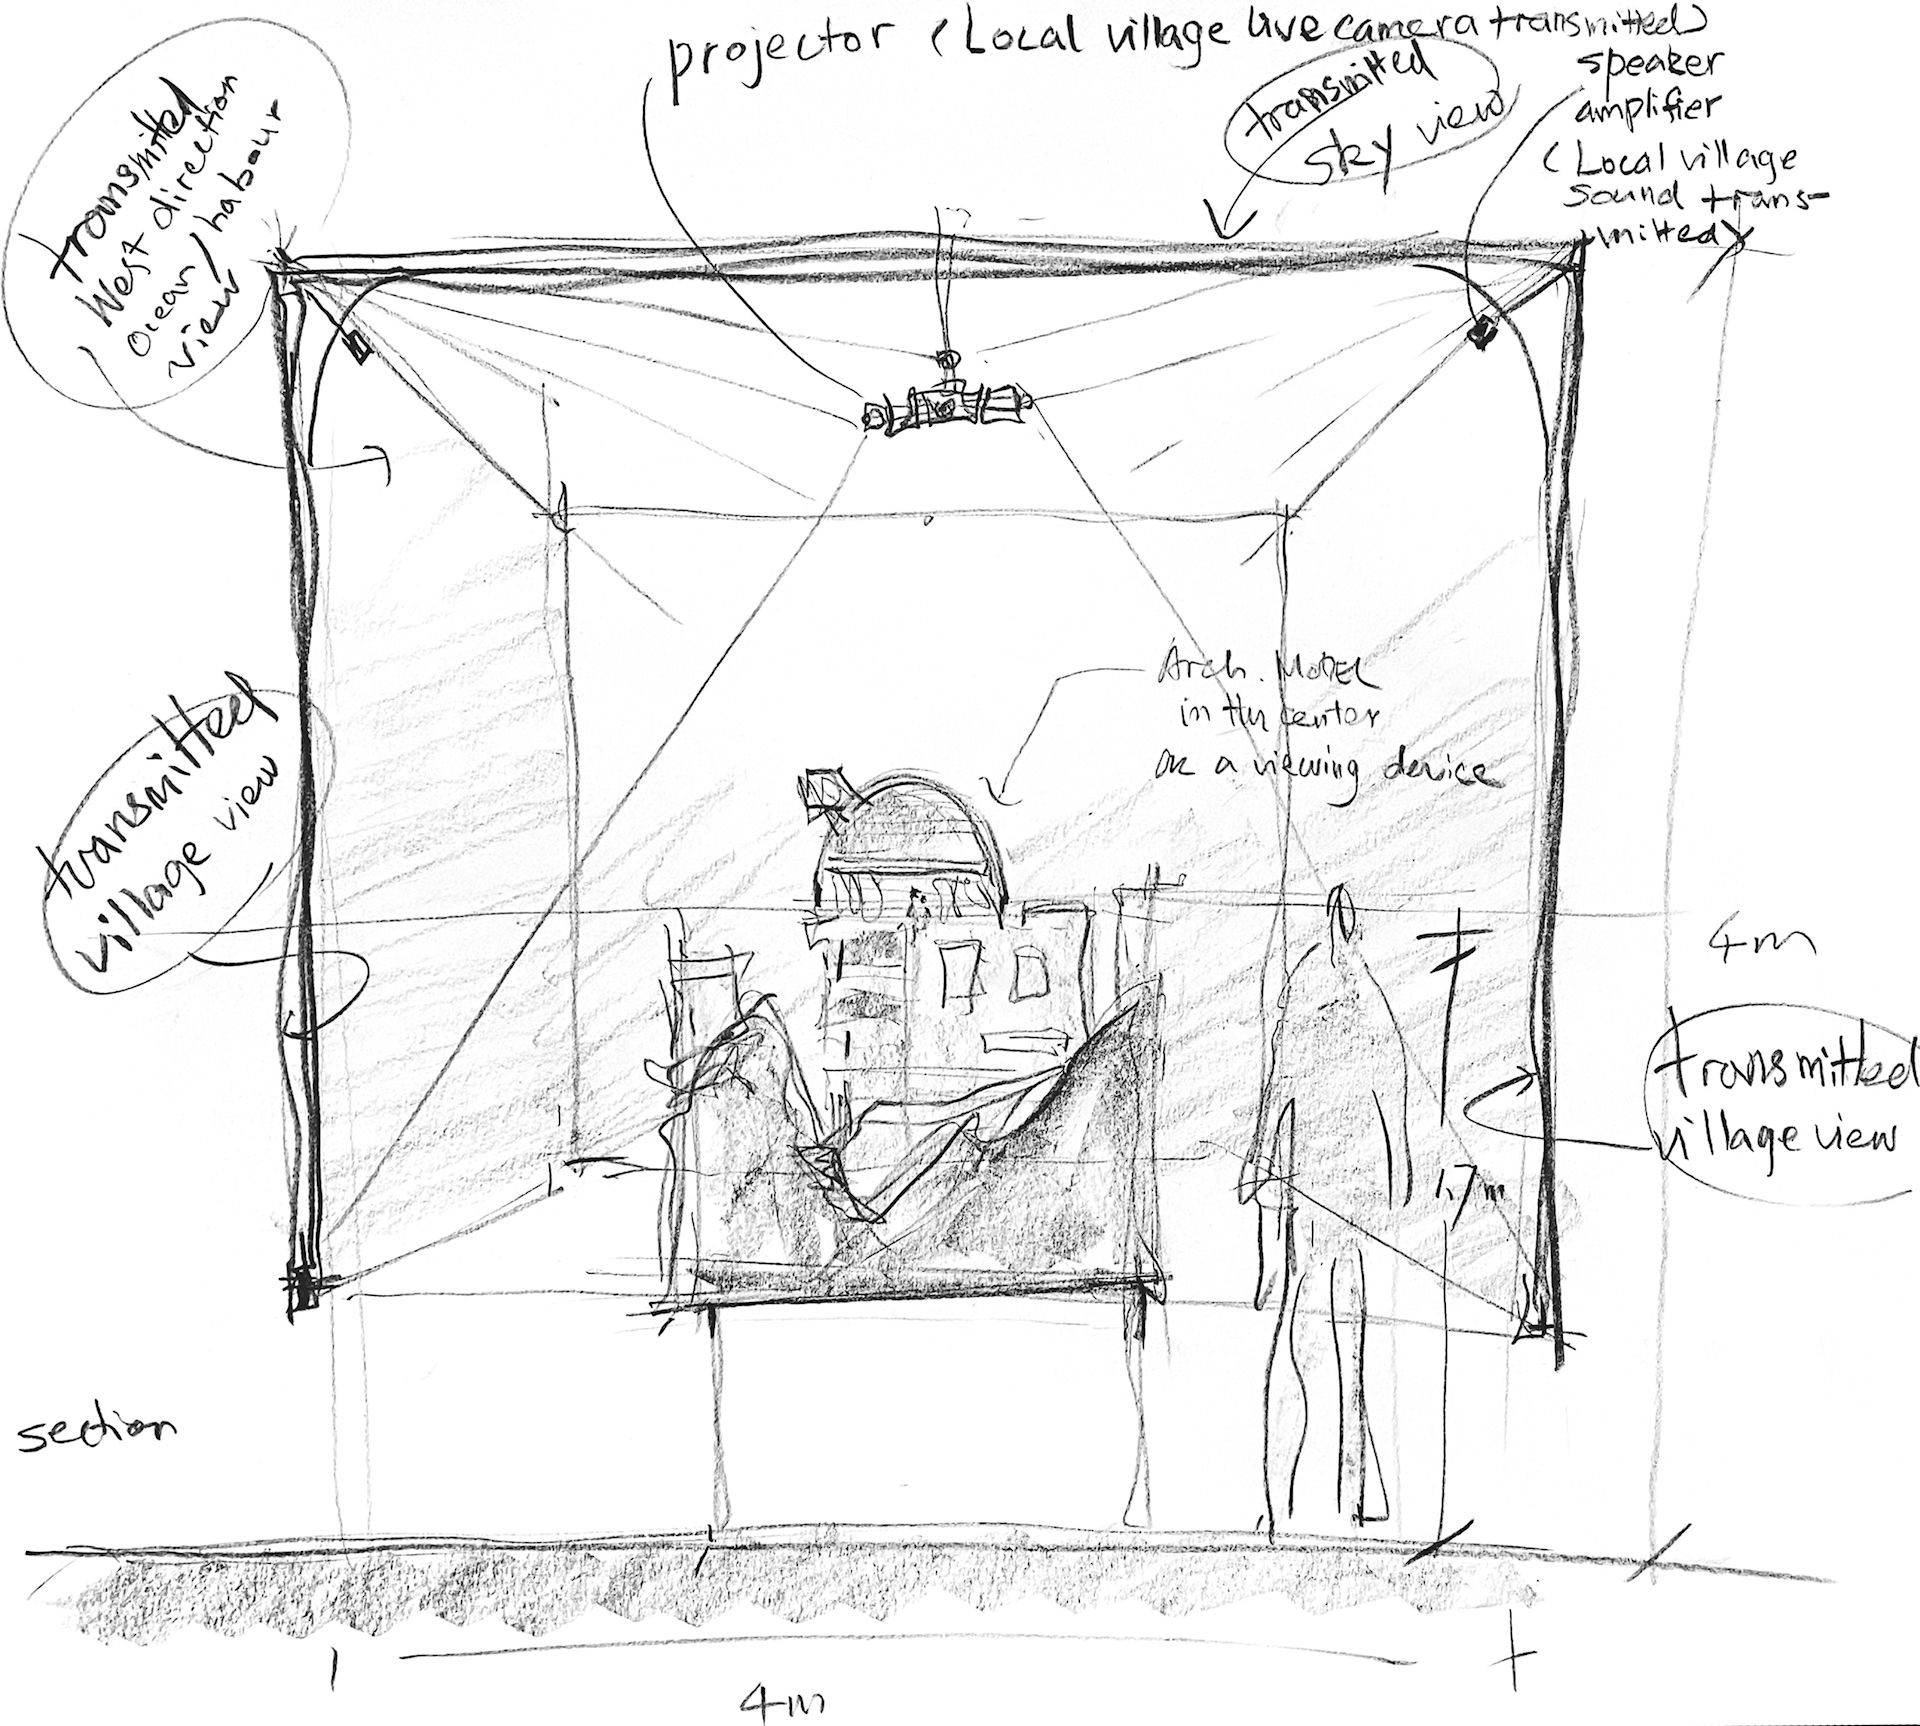 projector (Local village live camera transmitted)
transmitted
sky view
speaker
amplifier
(Local village
sound trans-
mitted)
transmitted
West direction
Ocean / habour
view
Arch. Model
in the center
as a viewing device
transmitted
village view
4m
transmitted
village view
1.7m
section
4m